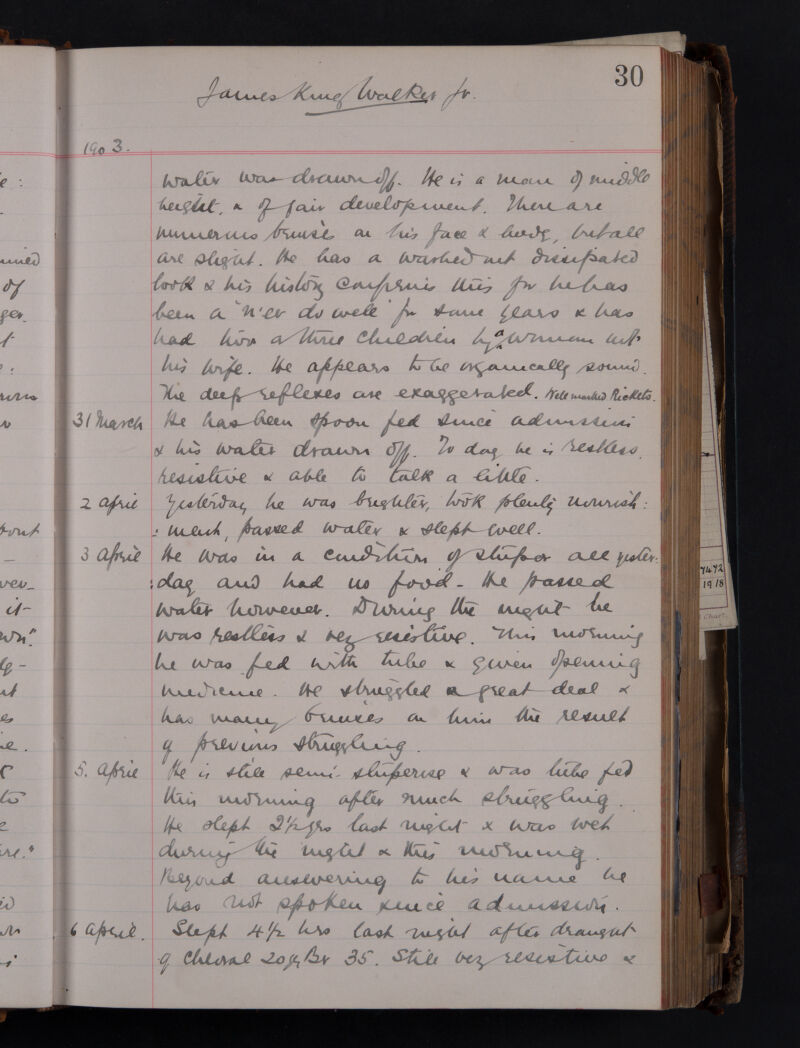 30
James King Walker Jr.
1903.
water was drawn off. He is a man of middle
height, & of fair development. There are
numerous bruises on his face & body, but all
are slight. He has a washed out dissipated
look & his history confirms this for he has
been a "n'er do well" for some years & has
had two or three children by a woman not
his wife. He appears to be organically sound.
The deep reflexes are exaggerated. Well marked Rickets.
31 March He has been spoon fed since admission
& his water drawn off. To day he is restless,
resistive & able to talk a little.
2 April Yesterday he was brighter, took plenty nourish:
: ment, passed water & slept well.
3 April He was in a condition of stupor all yester:
:day and had no food - He passed
water however. During the night he
was restless & very resistive. This morning
he was fed with tube & given opening
medicine. He struggled a great deal &
has many bruises on him the result
of previous struggling.
5. April He is still semi-stuperose & was tube fed
this morning after much struggling.
He slept 2½ hrs last night & was wet
during the night & this morning.
Beyond answering to his name he
has not spoken since admission.
6 April. Slept 4½ hrs last night after draught
of Chloral 20 gr Br 35. Still very resistive &
7472
1918
Chart